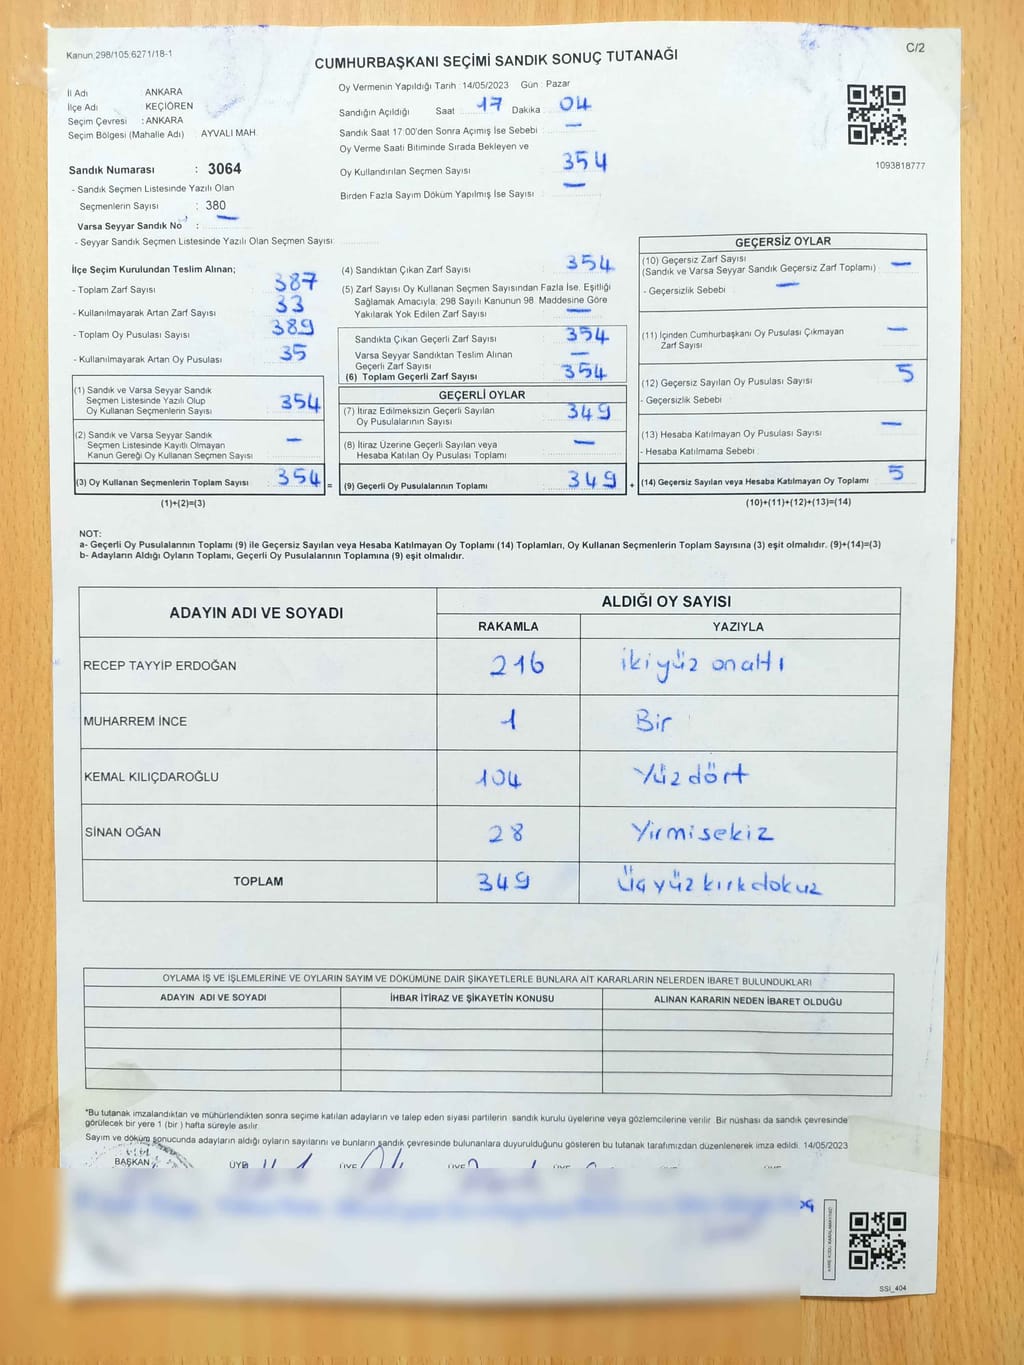 Kanun;298/105;6271/18-1
C/2
CUMHURBAŞKANI SEÇİMİ SANDIK SONUÇ TUTANAĞI
İl Adı ANKARA
İlçe Adı KEÇİÖREN
Seçim Çevresi : ANKARA
Seçim Bölgesi (Mahalle Adı) AYVALI MAH.
Sandık Numarası : 3064
- Sandık Seçmen Listesinde Yazılı Olan
Seçmenlerin Sayısı : 380
Varsa Seyyar Sandık No : —
- Seyyar Sandık Seçmen Listesinde Yazılı Olan Seçmen Sayısı:
Oy Vermenin Yapıldığı Tarih : 14/05/2023 Gün : Pazar
Sandığın Açıldığı Saat 17 Dakika 04
Sandık Saat 17:00'den Sonra Açımış İse Sebebi : —
Oy Verme Saati Bitiminde Sırada Bekleyen ve
Oy Kullandırılan Seçmen Sayısı 354
Birden Fazla Sayım Döküm Yapılmış İse Sayısı : —
1093818777
İlçe Seçim Kurulundan Teslim Alınan;
- Toplam Zarf Sayısı 387
- Kullanılmayarak Artan Zarf Sayısı 33
- Toplam Oy Pusulası Sayısı 389
- Kullanılmayarak Artan Oy Pusulası 35
(1) Sandık ve Varsa Seyyar Sandık
Seçmen Listesinde Yazılı Olup
Oy Kullanan Seçmenlerin Sayısı 354
(2) Sandık ve Varsa Seyyar Sandık
Seçmen Listesinde Kayıtlı Olmayan
Kanun Gereği Oy Kullanan Seçmen Sayısı —
(3) Oy Kullanan Seçmenlerin Toplam Sayısı 354 =
(1)+(2)=(3)
(4) Sandıktan Çıkan Zarf Sayısı 354
(5) Zarf Sayısı Oy Kullanan Seçmen Sayısından Fazla İse, Eşitliği
Sağlamak Amacıyla, 298 Sayılı Kanunun 98. Maddesine Göre
Yakılarak Yok Edilen Zarf Sayısı —
Sandıkta Çıkan Geçerli Zarf Sayısı 354
Varsa Seyyar Sandıktan Teslim Alınan
Geçerli Zarf Sayısı —
(6) Toplam Geçerli Zarf Sayısı 354
GEÇERLİ OYLAR
(7) İtiraz Edilmeksizin Geçerli Sayılan
Oy Pusulalarının Sayısı 349
(8) İtiraz Üzerine Geçerli Sayılan veya
Hesaba Katılan Oy Pusulası Toplamı —
(9) Geçerli Oy Pusulalarının Toplamı 349 +
GEÇERSİZ OYLAR
(10) Geçersiz Zarf Sayısı
(Sandık ve Varsa Seyyar Sandık Geçersiz Zarf Toplamı) —
- Geçersizlik Sebebi : —
(11) İçinden Cumhurbaşkanı Oy Pusulası Çıkmayan
Zarf Sayısı —
(12) Geçersiz Sayılan Oy Pusulası Sayısı 5
- Geçersizlik Sebebi
(13) Hesaba Katılmayan Oy Pusulası Sayısı —
- Hesaba Katılmama Sebebi :
(14) Geçersiz Sayılan veya Hesaba Katılmayan Oy Toplamı 5
(10)+(11)+(12)+(13)=(14)
NOT:
a- Geçerli Oy Pusulalarının Toplamı (9) ile Geçersiz Sayılan veya Hesaba Katılmayan Oy Toplamı (14) Toplamları, Oy Kullanan Seçmenlerin Toplam Sayısına (3) eşit olmalıdır. (9)+(14)=(3)
b- Adayların Aldığı Oyların Toplamı, Geçerli Oy Pusulalarının Toplamına (9) eşit olmalıdır.
ADAYIN ADI VE SOYADI ALDIĞI OY SAYISI
RAKAMLA YAZIYLA
RECEP TAYYİP ERDOĞAN 216 ikiyüz onaltı
MUHARREM İNCE 1 Bir
KEMAL KILIÇDAROĞLU 104 Yüz dört
SİNAN OĞAN 28 Yirmisekiz
TOPLAM 349 Üçyüz kırkdokuz
OYLAMA İŞ VE İŞLEMLERİNE VE OYLARIN SAYIM VE DÖKÜMÜNE DAİR ŞİKAYETLERLE BUNLARA AİT KARARLARIN NELERDEN İBARET BULUNDUKLARI
ADAYIN ADI VE SOYADI İHBAR İTİRAZ VE ŞİKAYETİN KONUSU ALINAN KARARIN NEDEN İBARET OLDUĞU
*Bu tutanak imzalandıktan ve mühürlendikten sonra seçime katılan adayların ve talep eden siyasi partilerin sandık kurulu üyelerine veya gözlemcilerine verilir. Bir nüshası da sandık çevresinde
görülecek bir yere 1 (bir ) hafta süreyle asılır.
Sayım ve döküm sonucunda adayların aldığı oyların sayılarını ve bunların sandık çevresinde bulunanlara duyurulduğunu gösteren bu tutanak tarafımızdan düzenlenerek imza edildi. 14/05/2023
BAŞKAN ÜYE ÜYE ÜYE ÜYE ÜYE
SSİ_404